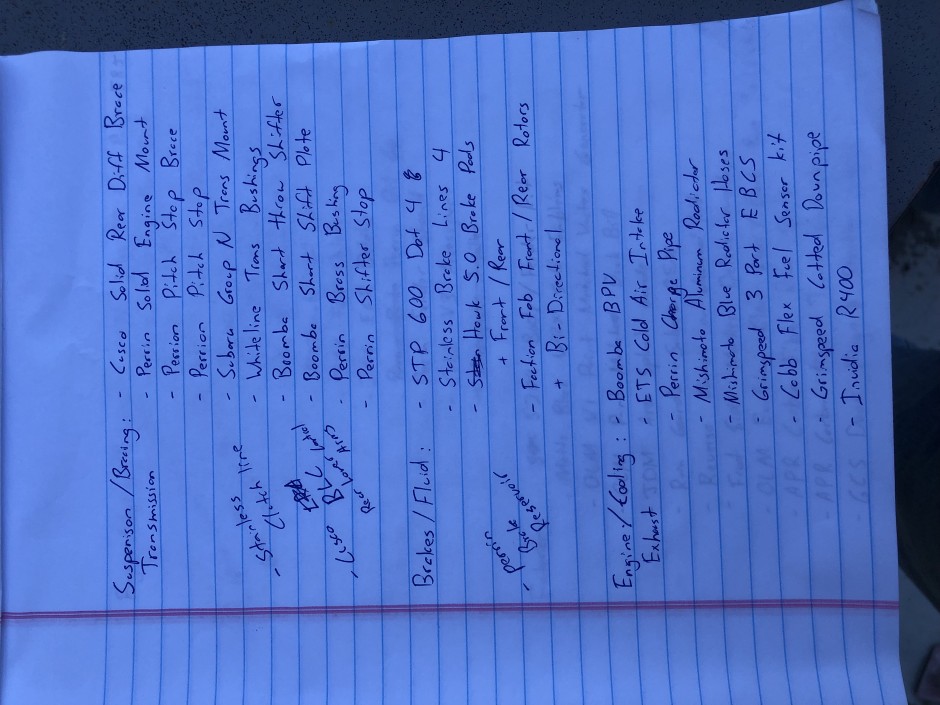 Suspenison/Bracing: - Cusco Solid Rear Diff Brace
Transmission - Perrin Solid Engine Mount
- Perrion Pitch Stop Brace
- Perrion Pitch Stop
- Subaru Group N Trans Mount
- Whiteline Trans Bushings
- Boomba Short throw Shifter
- Boomba Short Shift Plate
- Perrin Brass Bushing
- Perrin Shifter Stop
- Stainless
Clutch line
Brakes/Fluid: - STP 600 Dot 4
- Stainless Brake Lines 4
- Hawk 5.0 Brake Pads
+ Front/Rear
- Fraction Fab/Front/Rear Rotors
+ Bi-Directional
Engine/Cooling: - Boomba BPV
Exhaust - ETS Cold Air Intake
- Perrin Charge Pipe
- Mishimoto Aluminum Radictor
- Mishimoto Blue Radictor Hoses
- Grimspeed 3 Port EBCS
- Cobb Flex Fuel Sensor kit
- Grimspeed Catted Downpipe
- Invidia R400